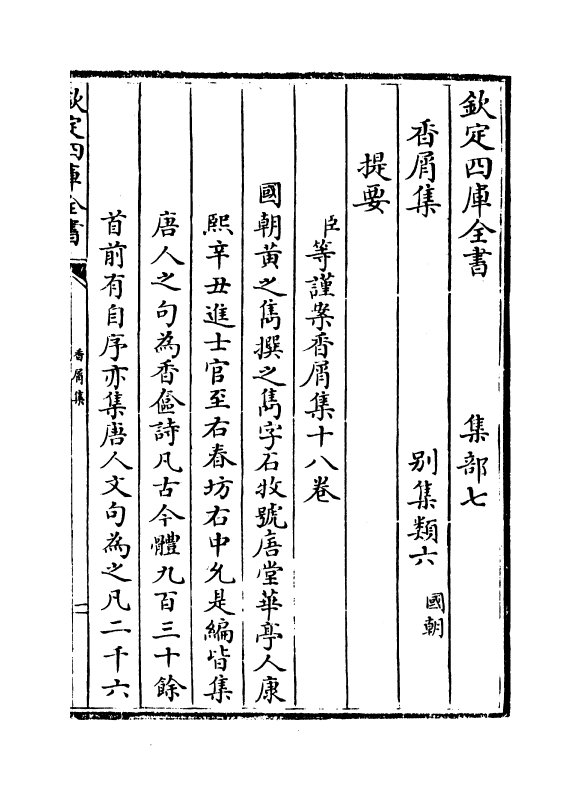 欽定四庫全書 集部七
香屑集 别集類六國朝
提要
臣等謹案香屑集十八卷
國朝黄之雋撰之雋字石牧號唐堂華亭人康
熙辛丑進士官至右春坊右中允是編皆集
唐人之句為香奩詩凡古今體九百三十餘
首前有自序亦集唐人文句為之凡二千六
欽定四庫全書
香屑集
一